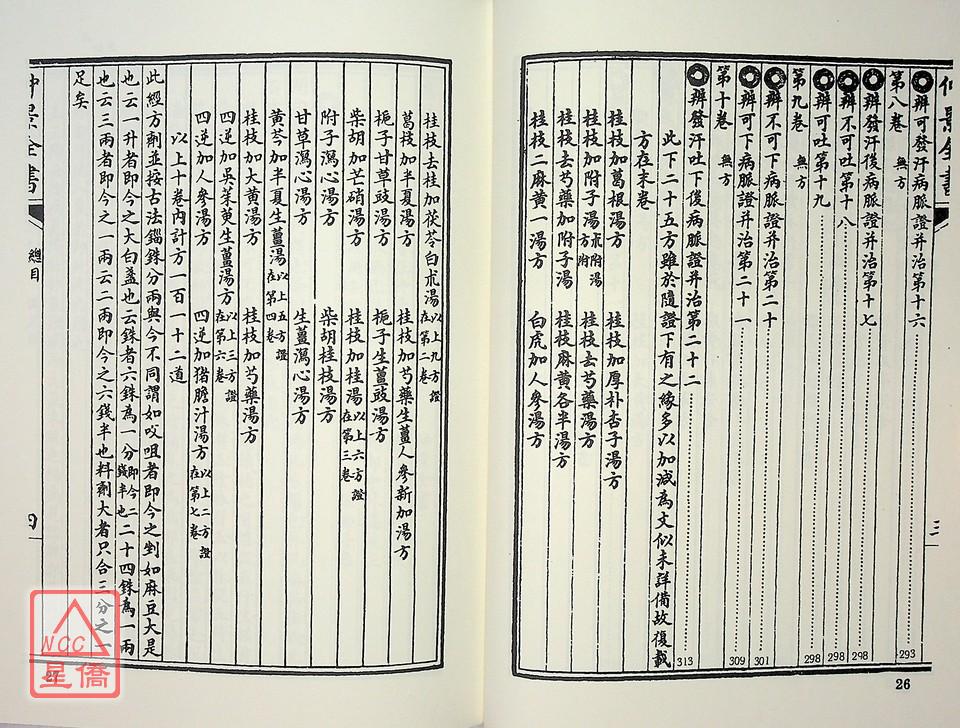 仲景全書
三
辨可發汗病脈證并治第十六 293
第八卷 無方
辨發汗後病脈證并治第十七 298
辨不可吐第十八 298
辨可吐第十九 298
第九卷 無方
辨不可下病脈證并治第二十 301
辨可下病脈證并治第二十一 309
第十卷 無方
辨發汗吐下後病脈證并治第二十二 313
此下二十五方雖於隨證下有之緣多以加減為文似未詳備故復載
方在末卷
桂枝加葛根湯方 桂枝加厚朴杏子湯方
桂枝加附子湯方 朮附湯方附 桂枝去芍藥湯方
桂枝去芍藥加附子湯 桂枝麻黃各半湯方
桂枝二麻黃一湯方 白虎加人參湯方
26
桂枝去桂加茯苓白朮湯 以上九方證在第二卷
葛枝加半夏湯方 桂枝加芍藥生薑人參新加湯方
梔子甘草豉湯方 梔子生薑豉湯方
柴胡加芒硝湯方 桂枝加桂湯 以上六方證在第三卷
附子瀉心湯方 柴胡桂枝湯方
甘草瀉心湯方 生薑瀉心湯方
黃芩加半夏生薑湯 以上五方證在第四卷
桂枝加大黃湯方 桂枝加芍藥湯方
四逆加吳茱萸生薑湯方 以上三方證在第六卷
四逆加人參湯方 四逆加猪膽汁湯方 以上二方證在第七卷
以上十卷內計方一百一十二道
此經方劑並按古法錙銖分兩與今不同謂如㕮咀者即今之剉如麻豆大是
也云一升者即今之大白盞也云銖者六銖為一分即今二錢半也二十四銖為一兩
也云三兩者即今之一兩云二兩即今之六錢半也料劑大者只合三分之一
足矣
仲景全書
總目
四
27
NCC
星僑